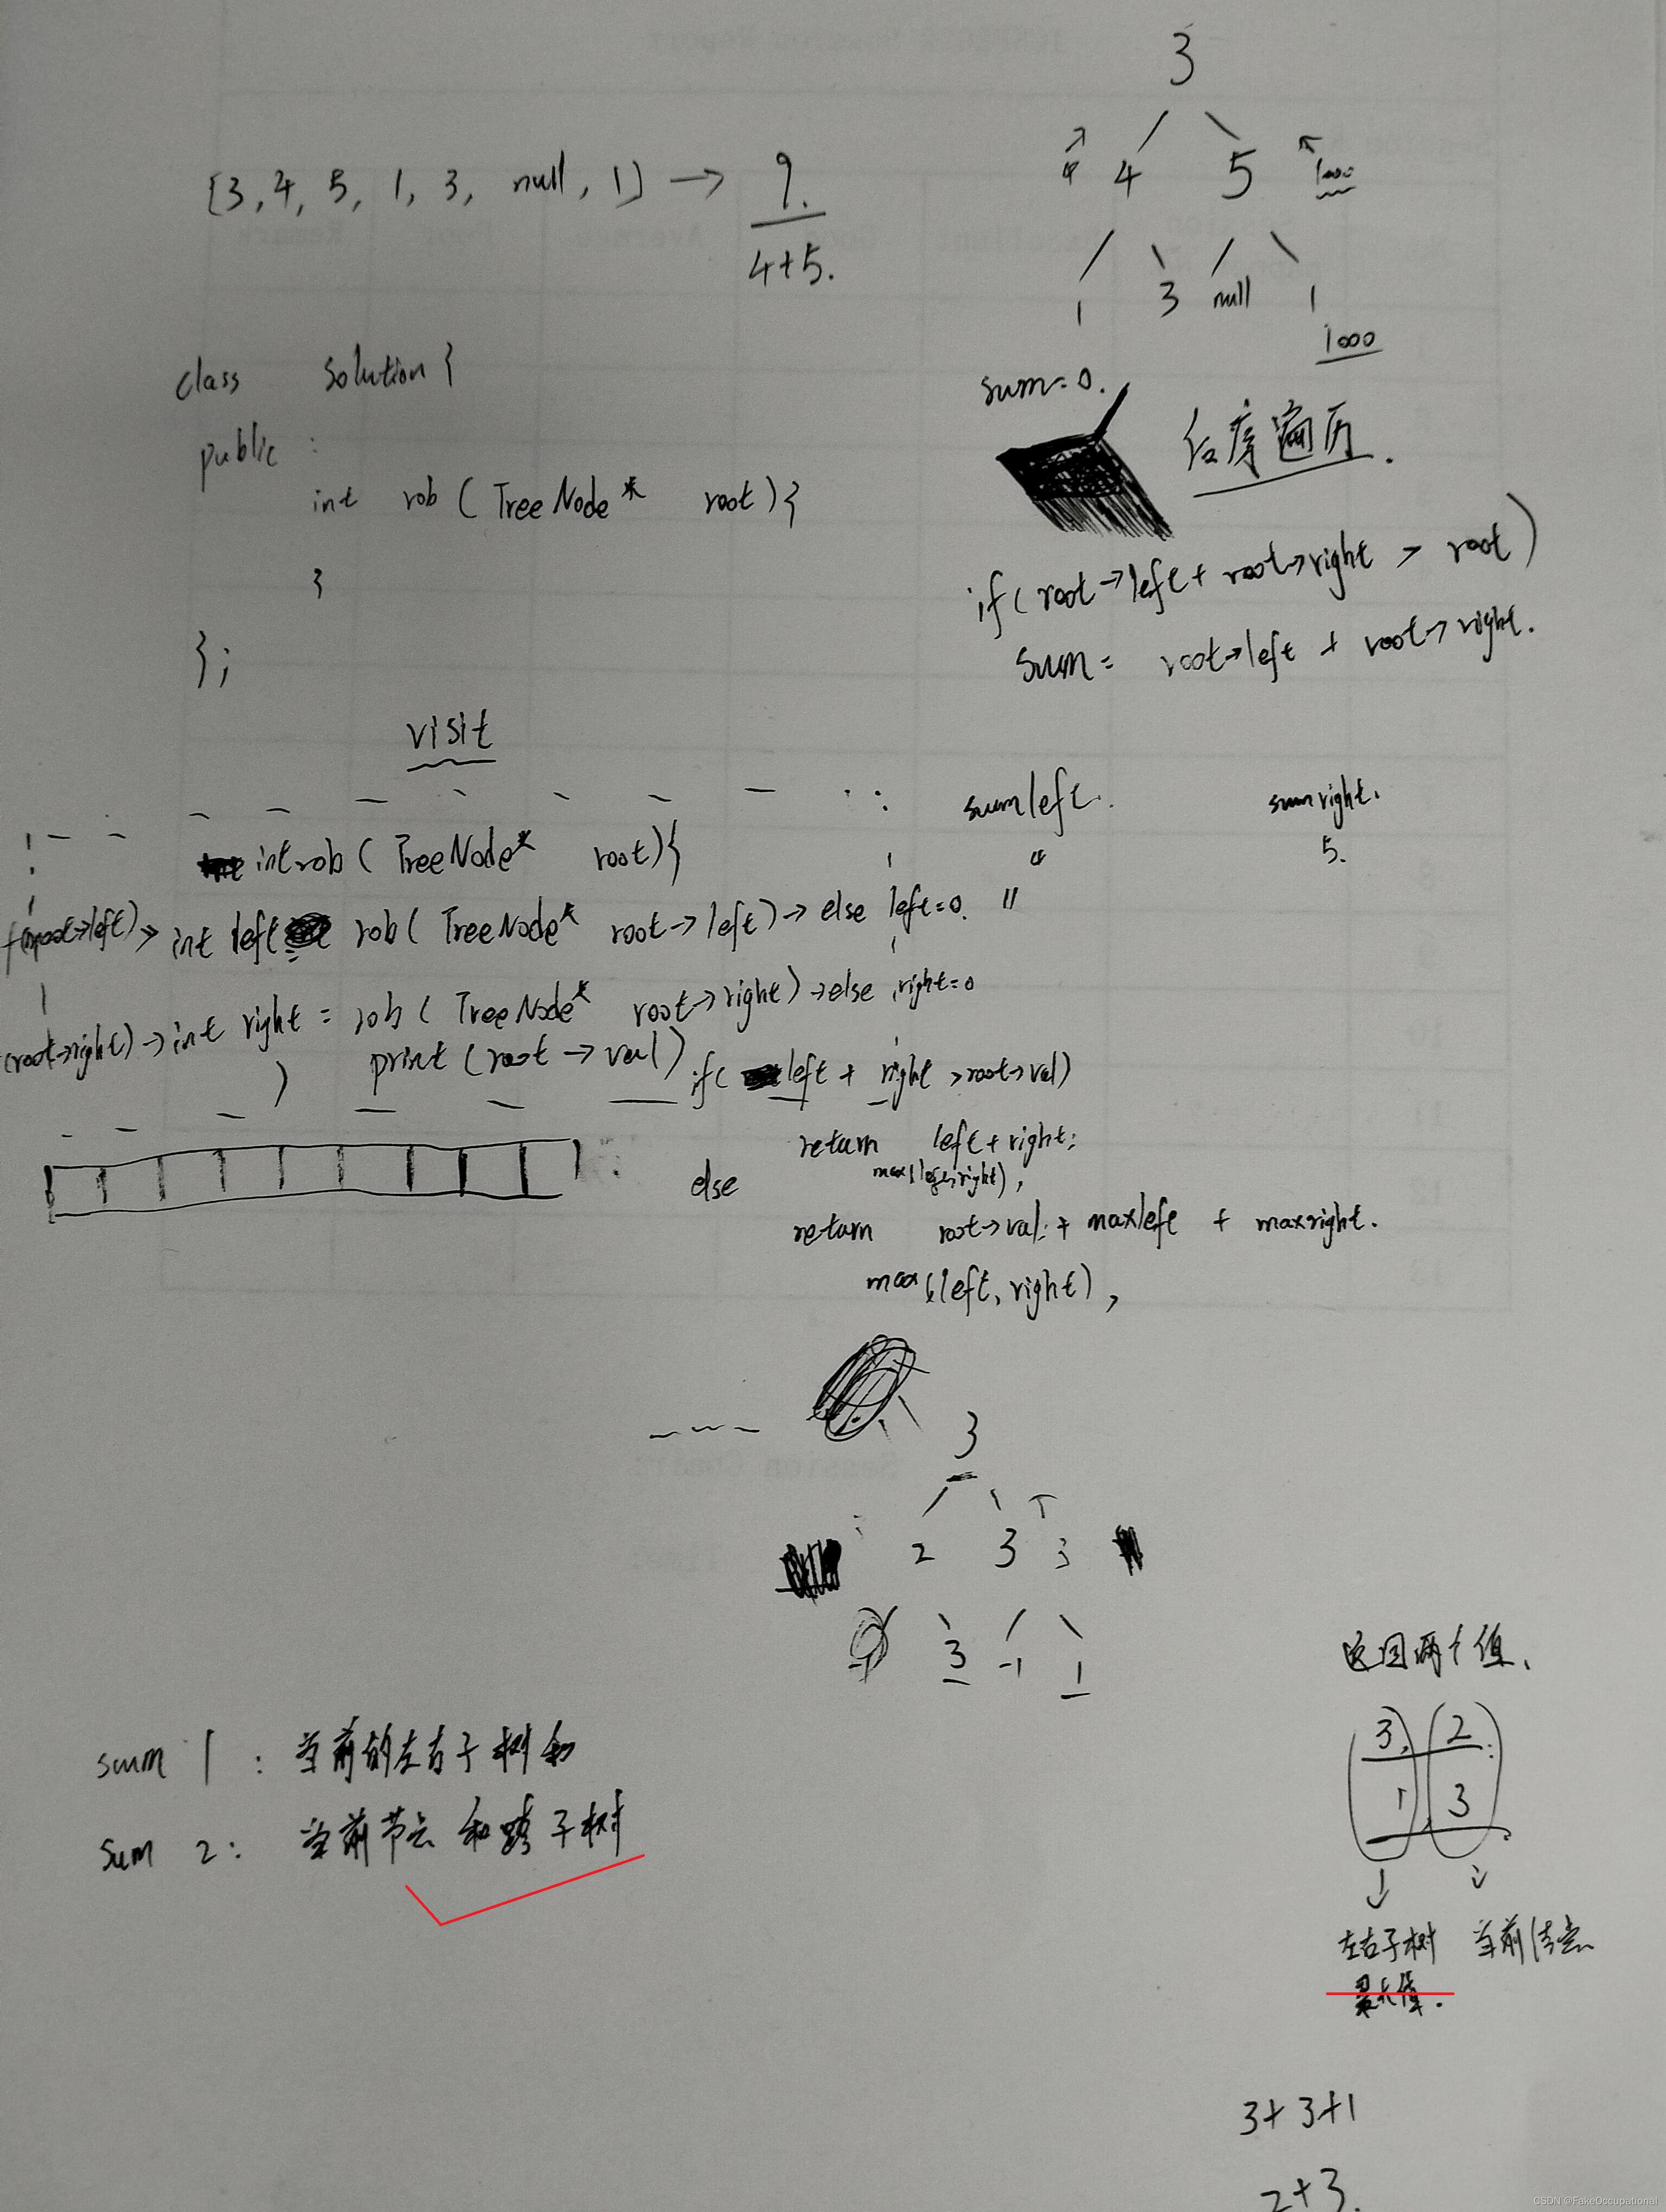 3
[3, 4, 5, 1, 3, null, 1] → 9.
4+5.
4 4 5 1000
1 3 null 1
1000
class Solution {
public :
int rob ( TreeNode* root) {
}
};
sum=0.
后序遍历.
if( root→left + root→right > root )
sum = root→left + root→right.
visit
sumleft. sumright.
4 5.
int rob ( TreeNode* root) {
(root→left) → int left rob ( TreeNode* root→left) → else left=0.
(root→right) → int right = rob ( TreeNode* root→right) → else right=0
} print (root → val)
if( left + right > root→val)
return left + right;
max(left,right),
else
return root→val + maxleft + maxright.
max(left, right),
3
2 3 3
3 -1 1
返回两个值、
3, 2
1, 3
左右子树 当前结点
最大值.
sum 1 : 当前的左右子树和
sum 2: 当前节点 和跨子树
3+3+1
2+3.
CSDN @FakeOccupational